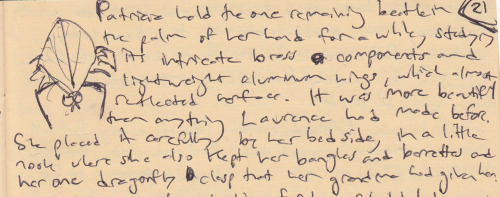 Patricia held the one remaining beetle in (21)
the palm of her hand for a while, studying
its intricate brass components and
lightweight aluminum wings, which almost
reflected surface. It was more beautiful
than anything Laurence had made before.
She placed it carefully by her bedside, in a little
nook where she also kept her bangles and barrettes and
her one dragonfly clasp that her grandma had given her.